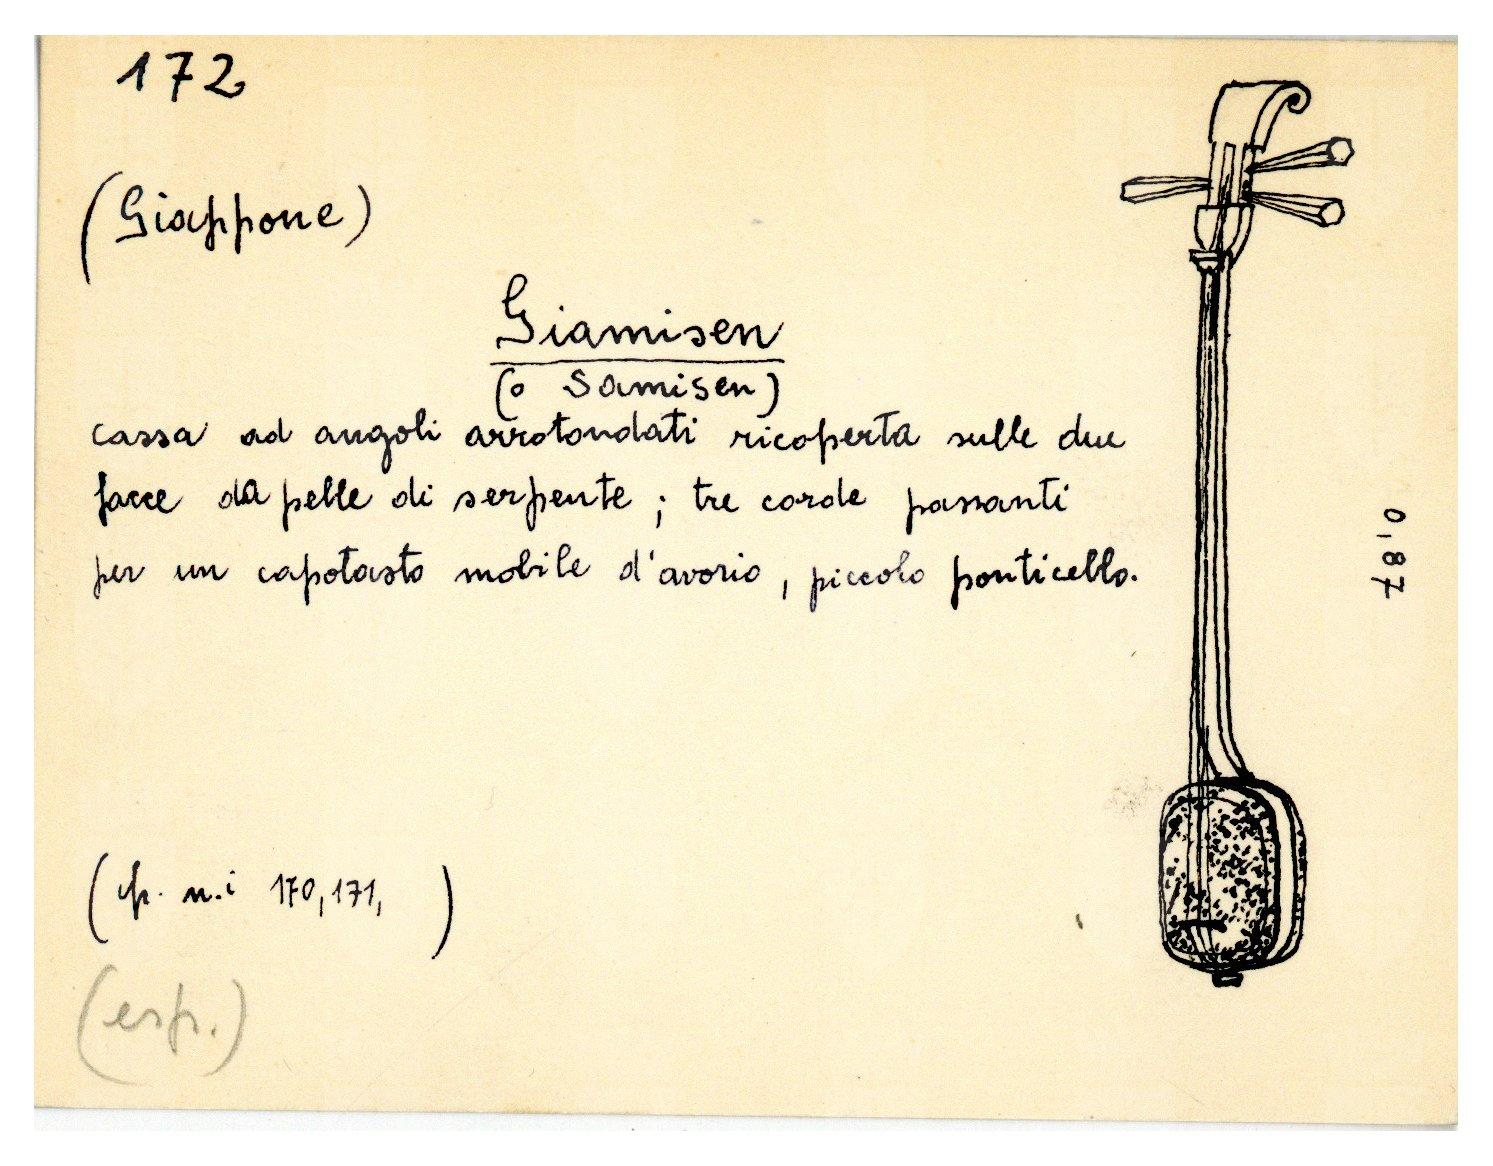 172
(Giappone)
Giamisen
(o Samisen)
cassa ad angoli arrotondati ricoperta sulle due
facce da pelle di serpente ; tre corde passanti
per un capotasto mobile d'avorio , piccolo ponticello.
0,87
(cfr. n.i 170, 171, )
(esp.)